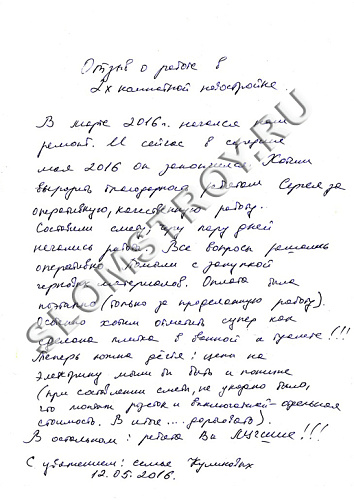 Отзыв о работе в
2х комнатной новостройке.
В марте 2016г. начался наш
ремонт. И сейчас в середине
мая 2016 он закончился. Хотим
выразить благодарность ребятам Сергея за
оперативную, качественную работу.
Составили смету, через пару дней
началась работа. Все вопросы решались
оперативно. Помогли с закупкой
черновых материалов. Оплата была
поэтапно (только за проделанную работу).
Особенно хотим отметить супер как
сделана плитка в ванной и туалете!!!
Теперь ложка дёгтя: цены на
электрику могли бы быть и пониже
(при составлении сметы, не указано было,
что монтаж розеток и выключателей - отдельная
стоимость. В итоге .... дороговато).
В остальном: ребята Вы Лучшие!!!
С уважением: семья Куликовых
12.05.2016.
SLOMSTROY.RU